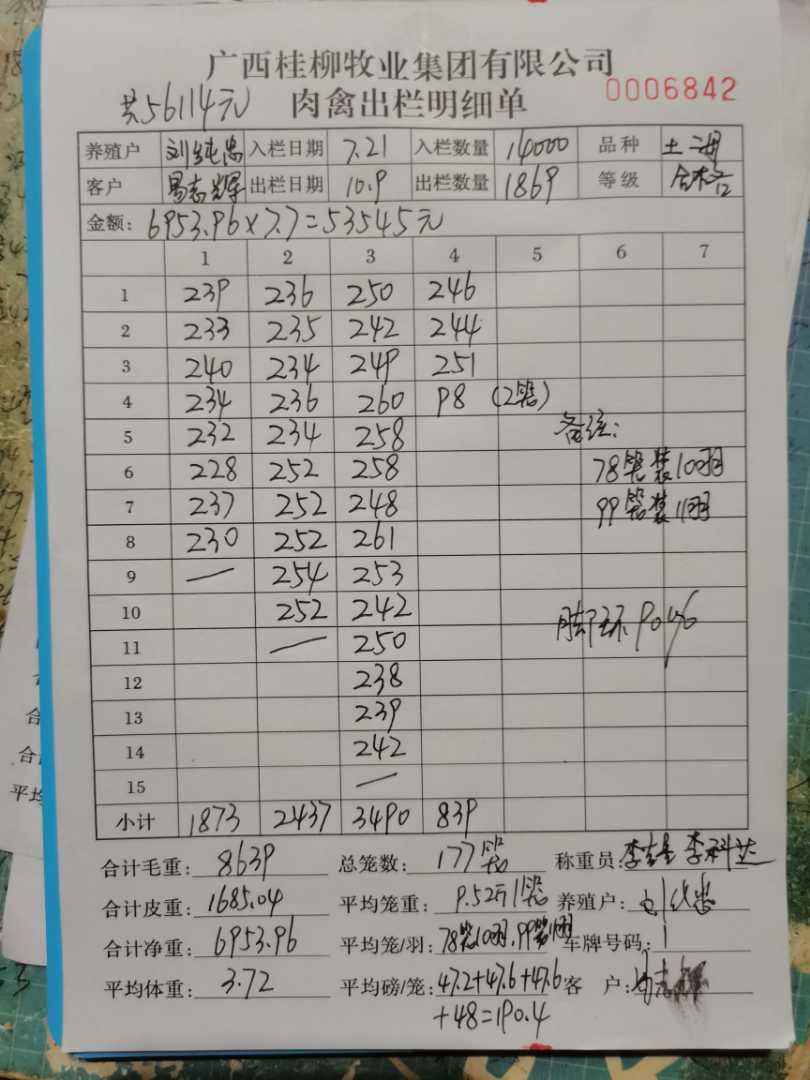 广西桂柳牧业集团有限公司
共56114元 肉禽出栏明细单 0006842
养殖户 刘纯忠 入栏日期 7.21 入栏数量 14000 品种 土二
客户 易志辉 出栏日期 10.9 出栏数量 1869 等级 合格
金额: 6953.96×7.7=53545元
1 2 3 4 5 6 7
1 239 236 250 246
2 233 235 242 244
3 240 234 249 251
4 234 236 260 98 (2笼)
5 232 234 258 备注:
6 228 252 258 78笼装10羽
7 237 252 248 99笼装11羽
8 230 252 261
9 — 254 253
10 252 242 脚环90%
11 — 250
12 238
13 239
14 242
15 —
小计 1873 2437 3490 839
合计毛重: 8639 总笼数: 177笼 称重员: 李 李科达
合计皮重: 1685.04 平均笼重: 9.52斤/笼 养殖户: 忠
合计净重: 6953.96 平均笼/羽: 78笼10羽,99笼11羽 车牌号码:
平均体重: 3.72 平均磅/笼: 47.2+47.6+47.6 客 户: 易志辉
+48=190.4